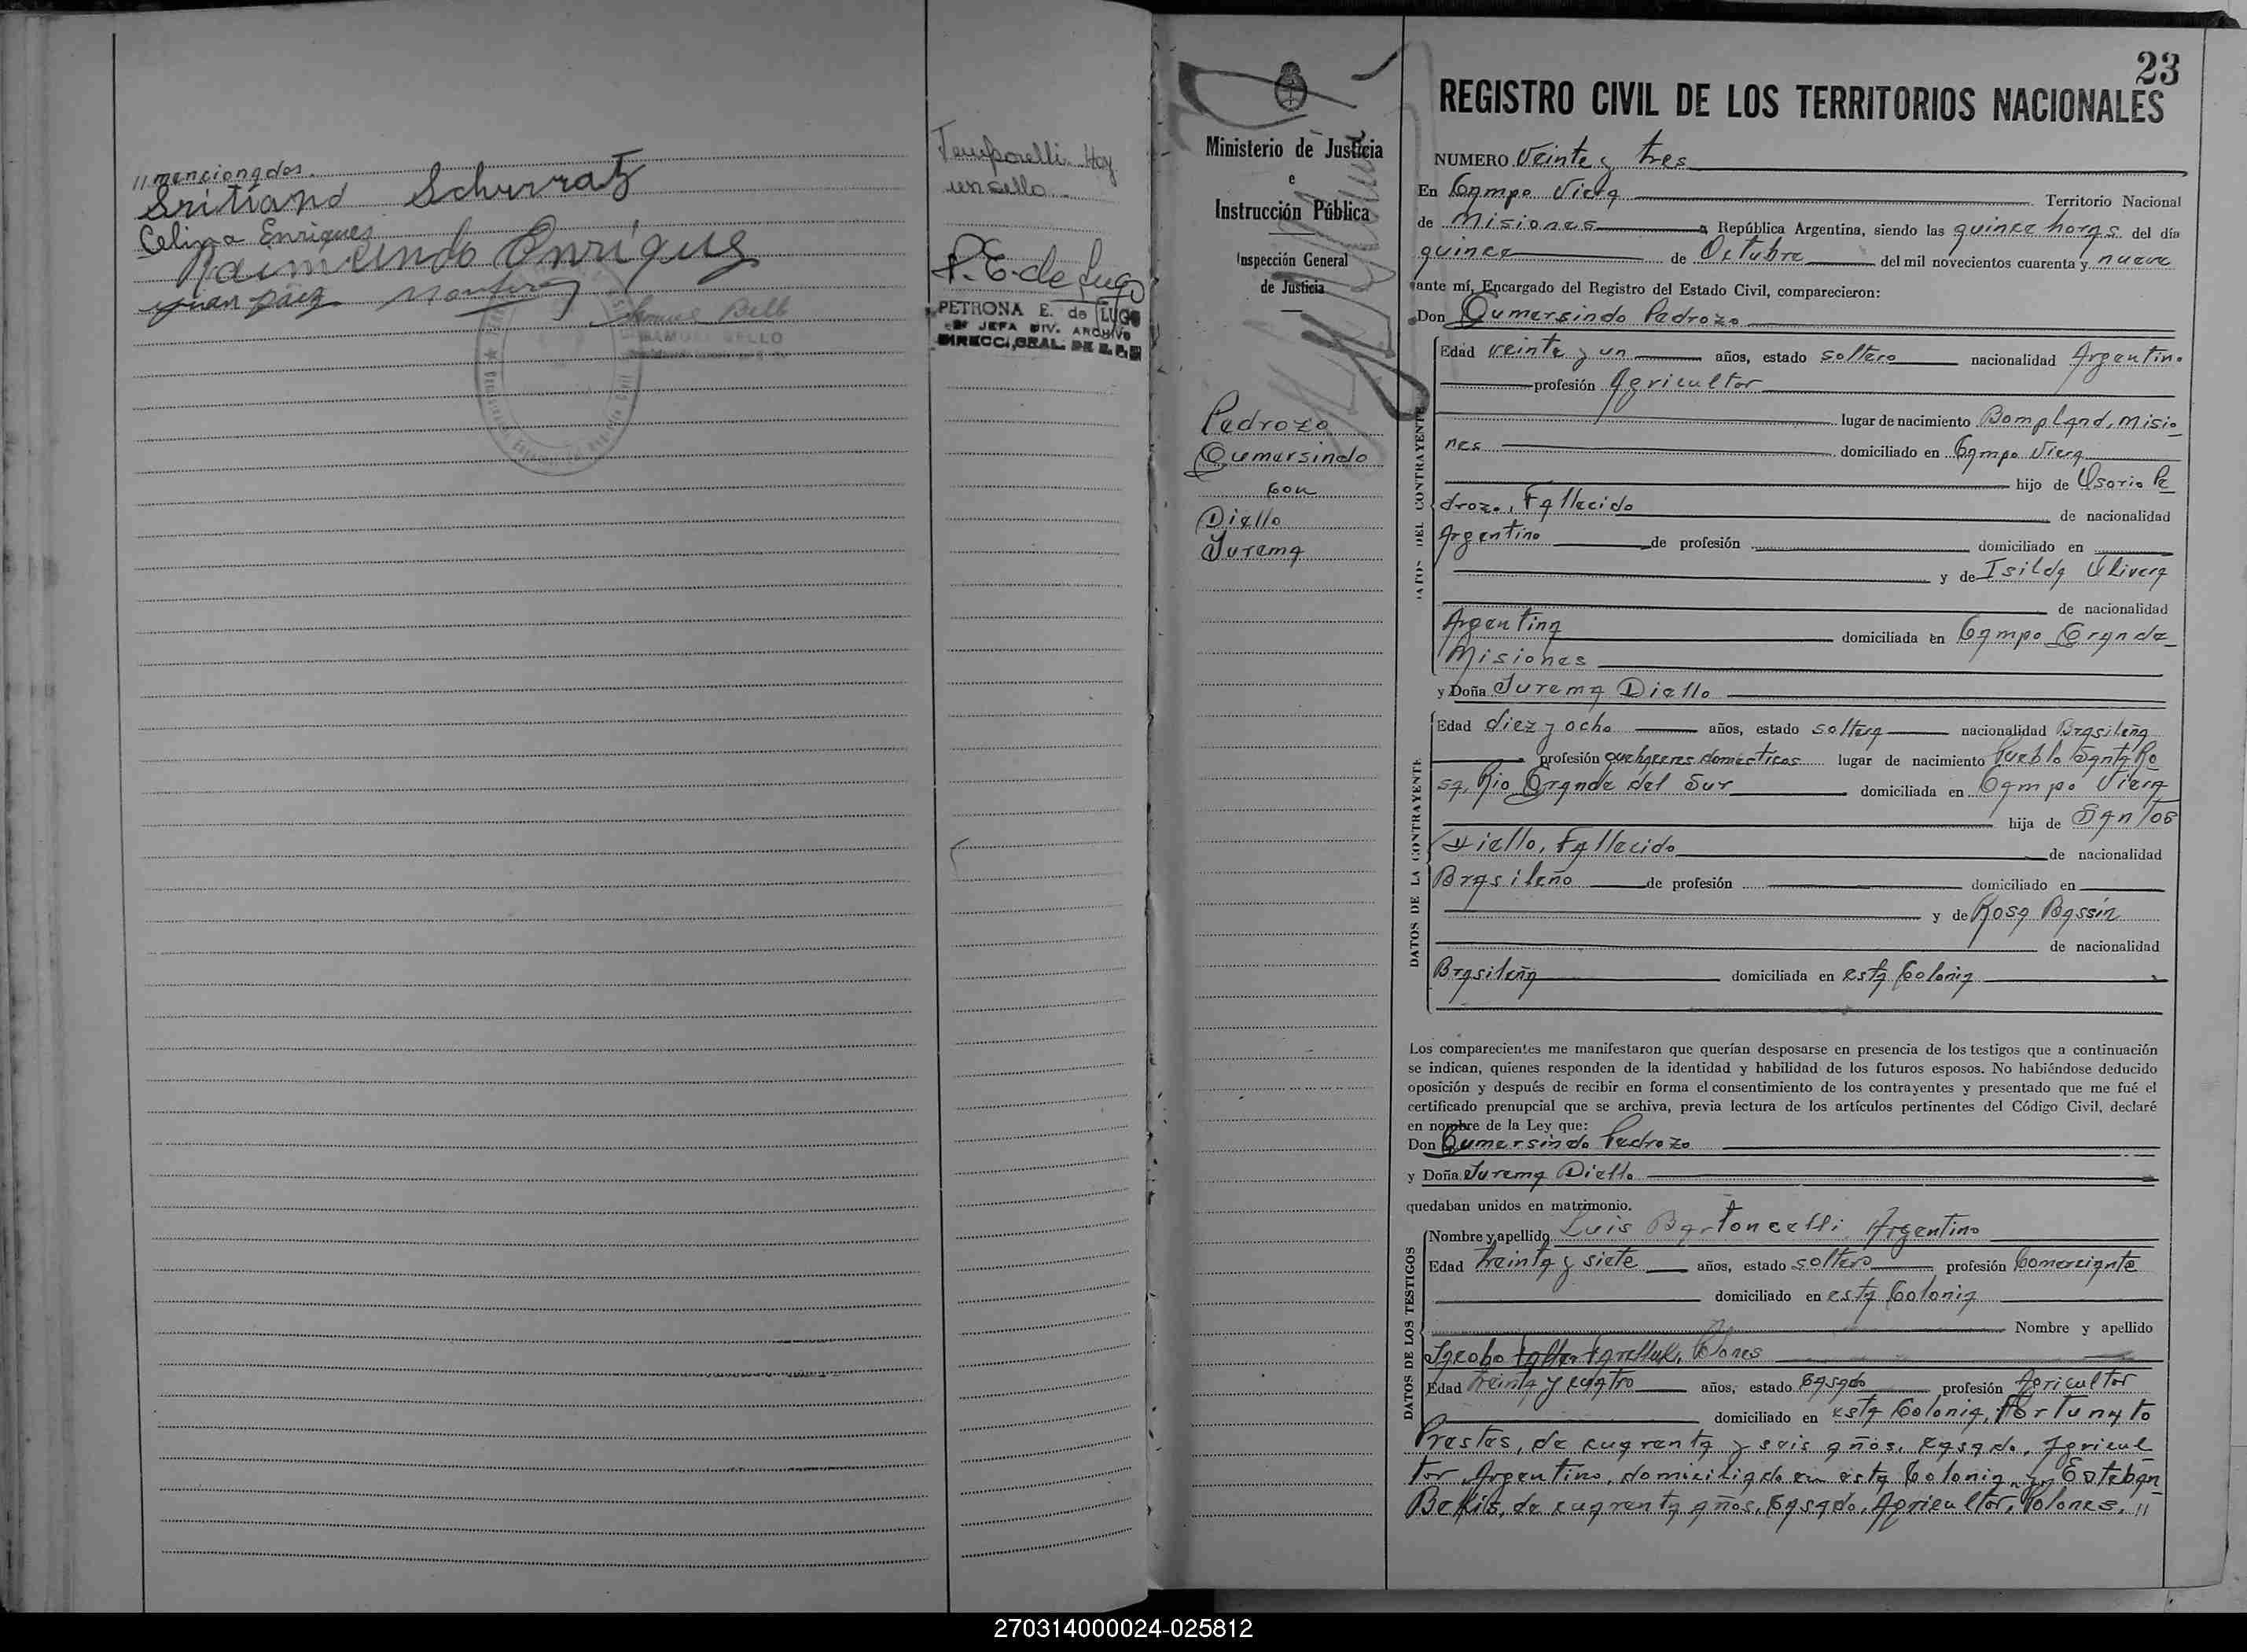 //mencionados.
Sritiano Schurratz
Celina Enriques
Raimundo Enriquez
Juan Páez
Temporelli. Hoy
un sello
P. E. de Lugo
PETRONA E. de LUGO
JEFA DIV. ARCHIVO
DIRECC. GRAL. DE
23
Ministerio de Justicia
e
Instrucción Pública
Inspección General
de Justicia
Pedrozo
Gumersindo
con
Diello
Jurema
REGISTRO CIVIL DE LOS TERRITORIOS NACIONALES
NUMERO Veinte y tres
En Campo Viera Territorio Nacional
de Misiones República Argentina, siendo las quince horas del día
quince de Octubre del mil novecientos cuarenta y nueve
ante mí, Encargado del Registro del Estado Civil, comparecieron:
Don Gumersindo Pedrozo
DATOS DEL CONTRAYENTE
Edad veinte y un años, estado soltero nacionalidad Argentino
profesión Agricultor
lugar de nacimiento Bompland, Misio-
nes domiciliado en Campo Viera
hijo de Osorio Pe
drozo, Fallecido de nacionalidad
Argentino de profesión domiciliado en
y de Isilda Olivera
de nacionalidad
Argentina domiciliada en Campo Grande
Misiones
y Doña Jurema Diello
DATOS DE LA CONTRAYENTE
Edad diez y ocho años, estado soltera nacionalidad Brasileña
profesión quehaceres domesticos lugar de nacimiento Pueblo Santa Ro
sa, Rio Grande del Sur domiciliada en Campo Viera
hija de Santos
Diello, Fallecido de nacionalidad
Brasileño de profesión domiciliado en
y de Rosa Bassin
de nacionalidad
Brasileña domiciliada en esta Colonia
Los comparecientes me manifestaron que querían desposarse en presencia de los testigos que a continuación
se indican, quienes responden de la identidad y habilidad de los futuros esposos. No habiéndose deducido
oposición y después de recibir en forma el consentimiento de los contrayentes y presentado que me fué el
certificado prenupcial que se archiva, previa lectura de los artículos pertinentes del Código Civil, declaré
en nombre de la Ley que:
Don Gumersindo Pedrozo
y Doña Jurema Diello
quedaban unidos en matrimonio.
DATOS DE LOS TESTIGOS
Nombre y apellido Luis Bartoncelli, Argentino
Edad treinta y siete años, estado soltero profesión Comerciante
domiciliado en esta Colonia
Nombre y apellido
Jacobo Polones
Edad treinta y cuatro años, estado Casado profesión Agricultor
domiciliado en esta Colonia, Fortunato
Prestes, de cuarenta y seis años, casado, Agricul
tor, Argentino, domiciliado en esta Colonia, y Esteban
de cuarenta años, Casado, Agricultor, Polones, //
270314000024-025812